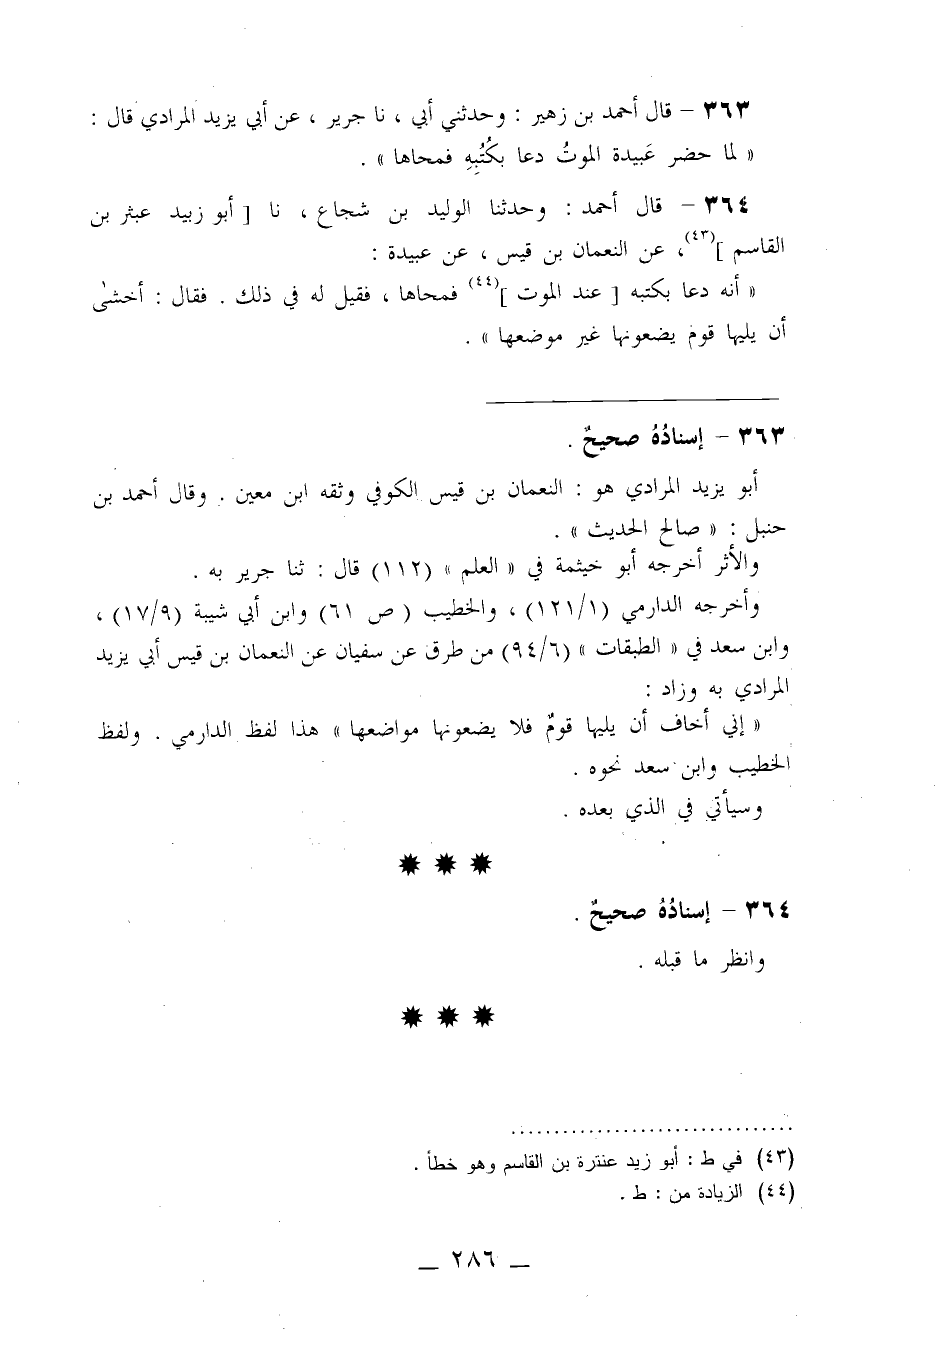 ٣٦٣ – قال أحمد بن زهير : وحدثني أبي ، نا جرير ، عن أبي يزيد المرادي قال :
« لما حضر عَبيدة الموتُ دعا بكُتُبِهِ فمحاها » .
٣٦٤ – قال أحمد : وحدثنا الوليد بن شجاع ، نا [ أبو زبيد عبثر بن
القاسم ](٤٣)، عن النعمان بن قيس ، عن عبيدة :
« أنه دعا بكتبه [ عند الموت ](٤٤) فمحاها ، فقيل له في ذلك . فقال : أخشىٰ
أن يليها قوم يضعونها غير موضعها » .
٣٦٣ – إسنادُهُ صحيحٌ .
أبو يزيد المرادي هو : النعمان بن قيس الكوفي وثقه ابن معين . وقال أحمد بن
حنبل : « صالح الحديث » .
والأثر أخرجه أبو خيثمة في « العلم » (١١٢) قال : ثنا جرير به .
وأخرجه الدارمي (١٢١/١) ، والخطيب ( ص ٦١) وابن أبي شيبة (١٧/٩) ،
وابن سعد في « الطبقات » (٩٤/٦) من طرق عن سفيان عن النعمان بن قيس أبي يزيد
المرادي به وزاد :
« إني أخاف أن يليها قومٌ فلا يضعونها مواضعها » هذا لفظ الدارمي . ولفظ
الخطيب وابن سعد نحوه .
وسيأتي في الذي بعده .
٣٦٤ – إسنادُهُ صحيحٌ .
وانظر ما قبله .
(٤٣) في ط : أبو زيد عنترة بن القاسم وهو خطأ .
(٤٤) الزيادة من : ط .
– ٢٨٦ –